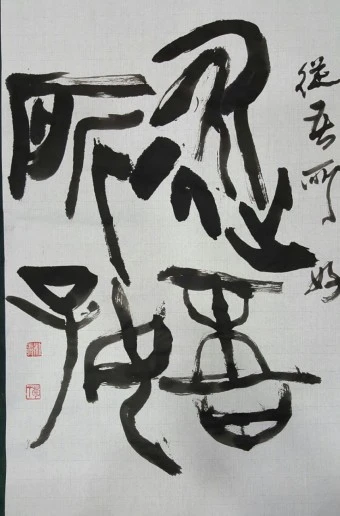 從吾所好
從吾
所好